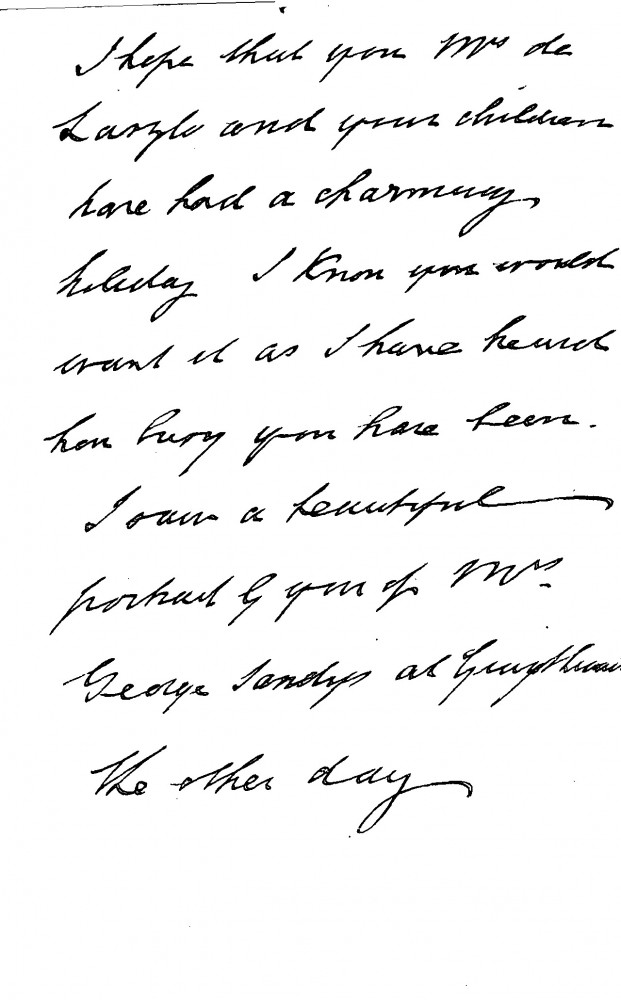 I hope that you Mrs de
Laszlo and your children
have had a charming
holiday I know you would
want it as I have heard
how busy you have been.
I saw a beautiful
portrait by you of Mrs.
George Sandys at Graythwaite
the other day